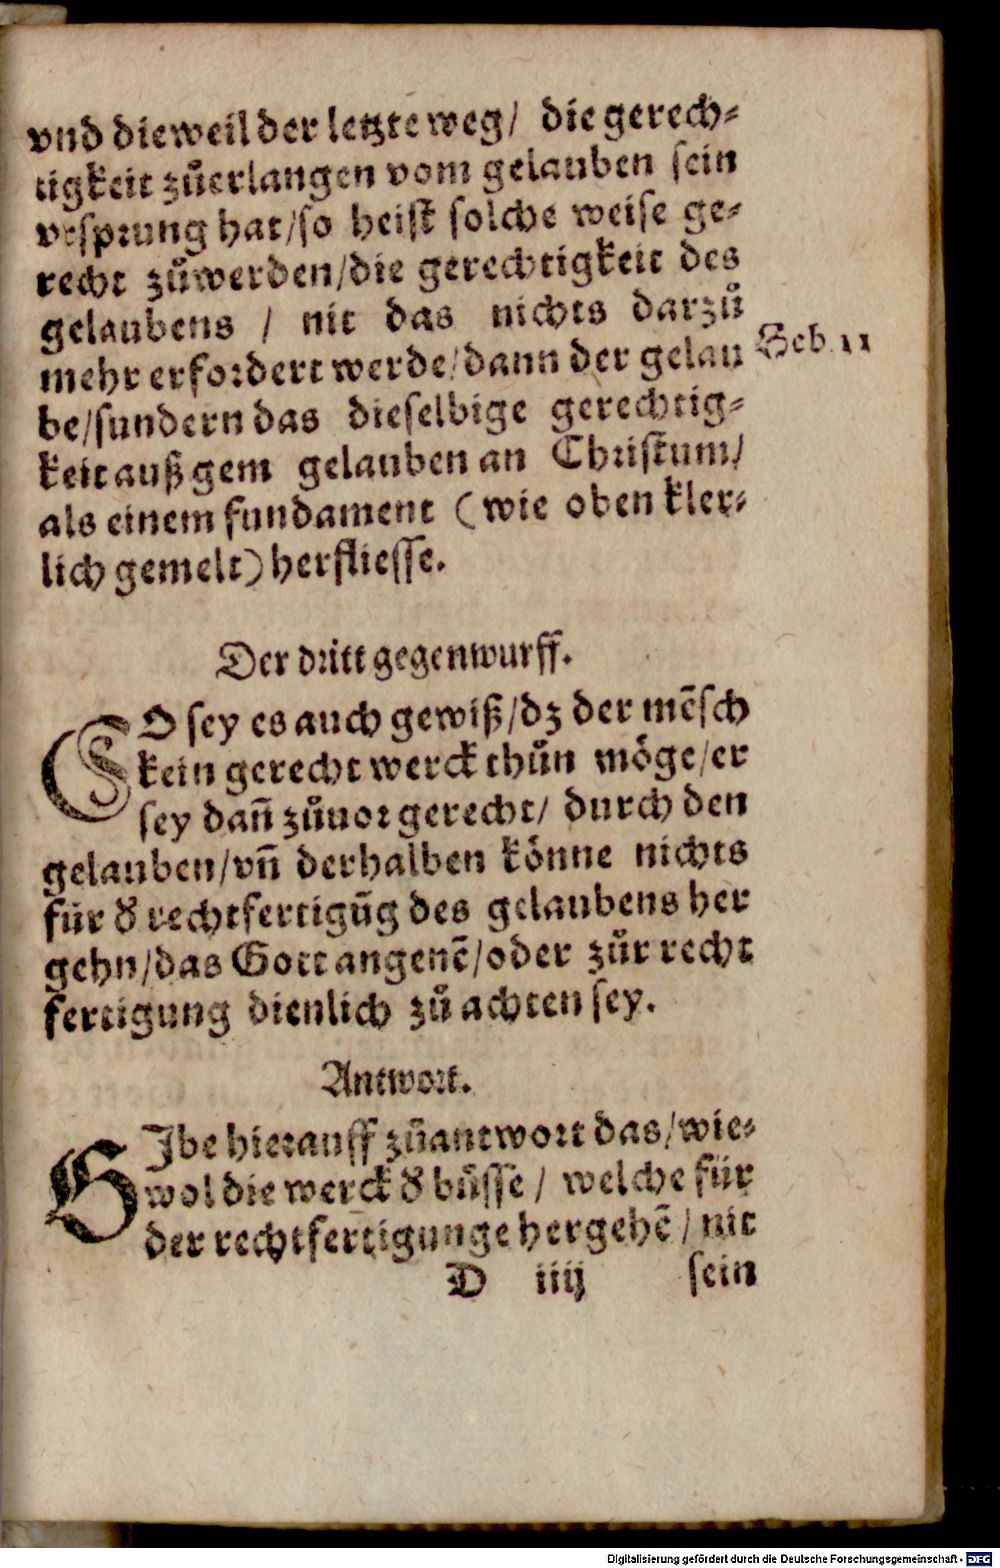 vnd dieweil der letzte weg/ die gerech⸗
tigkeit zůerlangen vom gelauben sein
vrsprung hat/so heist solche weise ge⸗
recht zůwerden/die gerechtigkeit des
gelaubens / nit das nichts darzů
mehr erfordert werde/dann der gelau
be/sundern das dieselbige gerechtig⸗
keit außgem gelauben an Christum/
als einem fundament (wie oben kler⸗
lich gemelt) herfliesse.
Heb. 11
Der dritt gegenwurff.
SO sey es auch gewiß/dz der mẽsch
kein gerecht werck thůn möge/er
sey dañ zůuor gerecht/ durch den
gelauben/vñ derhalben könne nichts
für d̕ rechtfertigũg des gelaubens her
gehn/das Gott angenẽ/oder zůr recht
fertigung dienlich zů achten sey.
Antwort.
GIbe hierauff zůantwort das/wie⸗
wol die werck d̕ bůsse / welche für
der rechtfertigunge hergehẽ / nit
D iiij sein
Digitalisierung gefördert durch die Deutsche Forschungsgemeinschaft - DFG